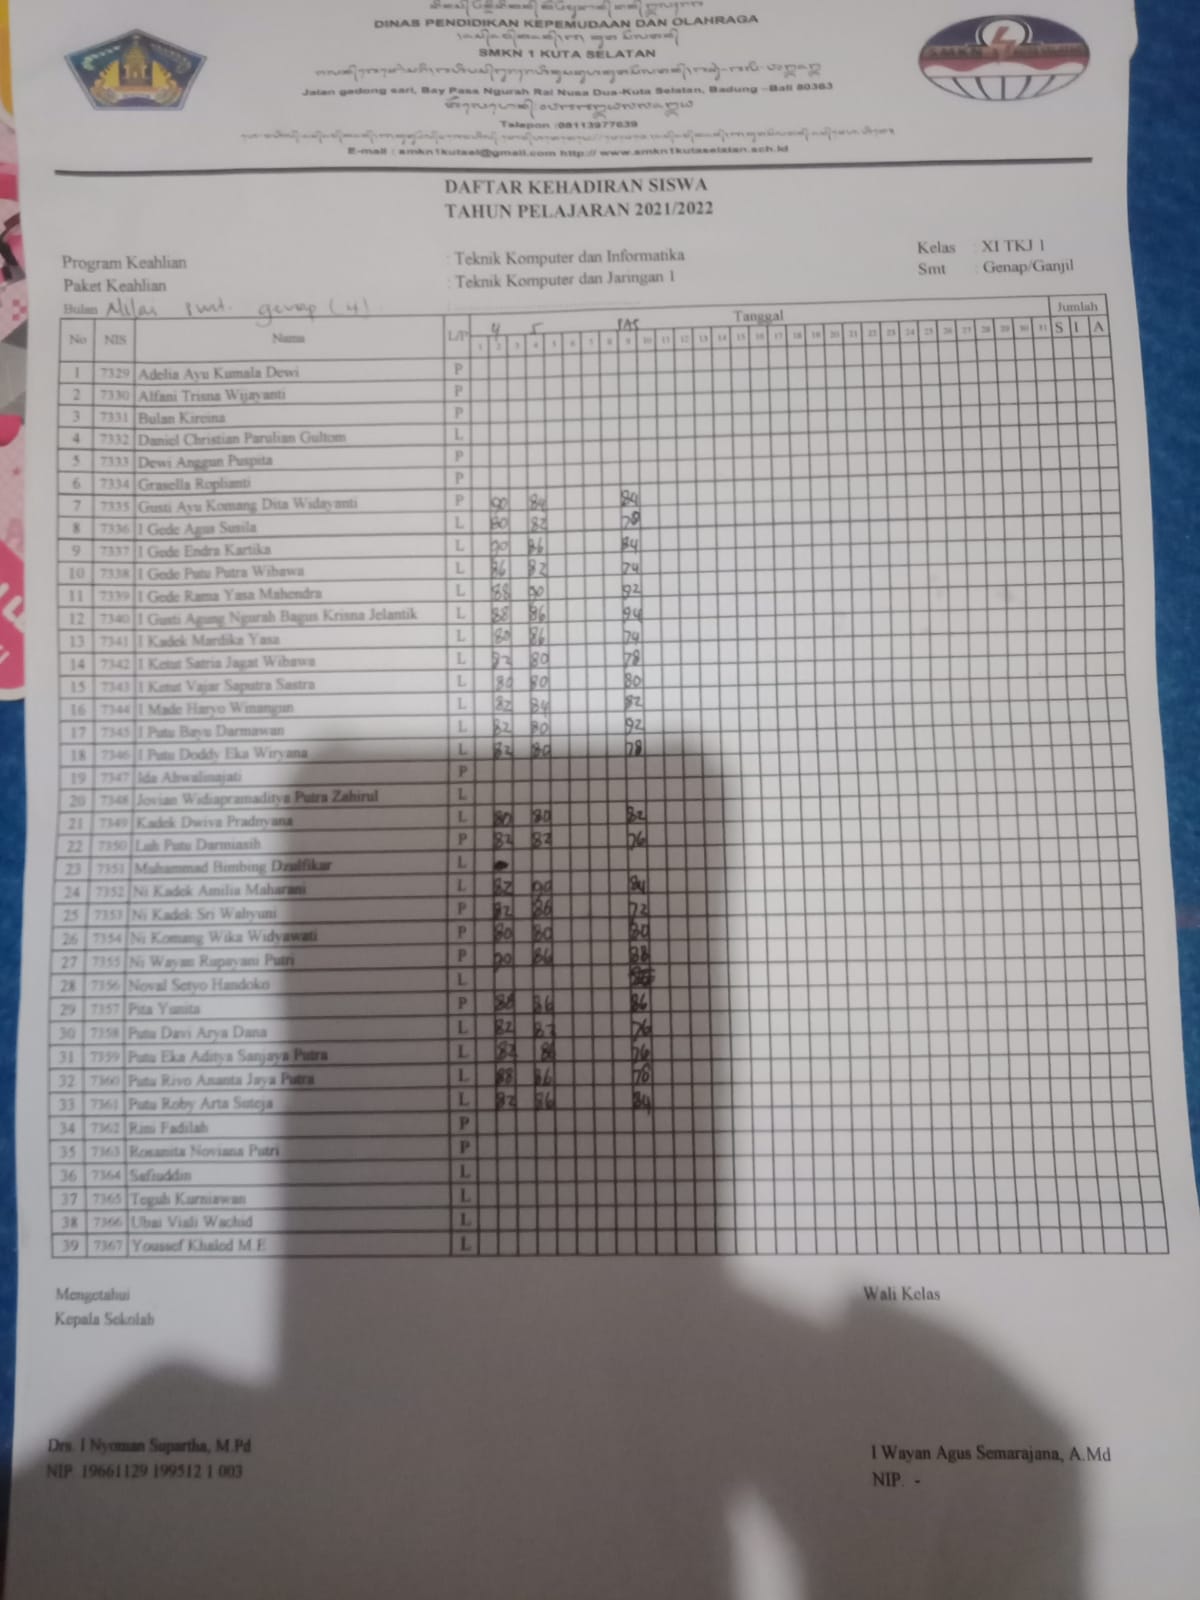 DINAS PENDIDIKAN KEPEMUDAAN DAN OLAHRAGA
SMKN 1 KUTA SELATAN
Jalan gedong sari, Bay Pass Ngurah Rai Nusa Dua-Kuta Selatan, Badung -Bali 80363
Telepon :08113977639
E-mail : smkn1kutasel@gmail.com http:// www.smkn1kutaselatan.sch.id
DAFTAR KEHADIRAN SISWA
TAHUN PELAJARAN 2021/2022
Program Keahlian : Teknik Komputer dan Informatika Kelas : XI TKJ 1
Paket Keahlian : Teknik Komputer dan Jaringan 1 Smt : Genap/Ganjil
Bulan Nilai smt. genap (4)
No NIS Nama L/P Tanggal Jumlah
4 5 PAS
1 2 3 4 5 6 7 8 9 10 11 12 13 14 15 16 17 18 19 20 21 22 23 24 25 26 27 28 29 30 31 S I A
1 7329 Adelia Ayu Kumala Dewi P
2 7330 Alfani Trisna Wijayanti P
3 7331 Bulan Kireina P
4 7332 Daniel Christian Parulian Gultom L
5 7333 Dewi Anggun Puspita P
6 7334 Grasella Roplianti P
7 7335 Gusti Ayu Komang Dita Widayanti P 90 84 84
8 7336 I Gede Agus Susila L 80 82 78
9 7337 I Gede Endra Kartika L 90 86 84
10 7338 I Gede Putu Putra Wibawa L 86 82 74
11 7339 I Gede Rama Yasa Mahendra L 88 90 92
12 7340 I Gusti Agung Ngurah Bagus Krisna Jelantik L 88 86 94
13 7341 I Kadek Mardika Yasa L 80 86 74
14 7342 I Ketut Satria Jagat Wibawa L 82 80 78
15 7343 I Ketut Vajar Saputra Sastra L 80 80 80
16 7344 I Made Haryo Winangun L 82 84 82
17 7345 I Putu Bayu Darmawan L 82 80 92
18 7346 I Putu Doddy Eka Wiryana L 82 80 78
19 7347 Ida Ahwalinajati P
20 7348 Jovian Widiapramaditya Putra Zahirul L
21 7349 Kadek Dwiva Pradnyana L 80 80 82
22 7350 Luh Putu Darmiasih P 82 82 76
23 7351 Muhammad Bimbing Dzulfikar L
24 7352 Ni Kadek Amilia Maharani L 82 90 84
25 7353 Ni Kadek Sri Wahyuni P 82 86 72
26 7354 Ni Komang Wika Widyawati P 80 80 80
27 7355 Ni Wayan Rupayani Putri P 90 86 88
28 7356 Noval Setyo Handoko L
29 7357 Pita Yunita P 88 86 86
30 7358 Putu Davi Arya Dana L 82 82 76
31 7359 Putu Eka Aditya Sanjaya Putra L 82 86 76
32 7360 Putu Rivo Ananta Jaya Putra L 88 86 78
33 7361 Putu Roby Arta Suteja L 82 86 84
34 7362 Rini Fadilah P
35 7363 Rosanita Noviana Putri P
36 7364 Safiuddin L
37 7365 Teguh Kurniawan L
38 7366 Ubai Viali Wachid L
39 7367 Youssef Khaled M.E L
Mengetahui Wali Kelas
Kepala Sekolah
Drs. I Nyoman Supartha, M.Pd I Wayan Agus Semarajana, A.Md
NIP. 19661129 199512 1 003 NIP. -